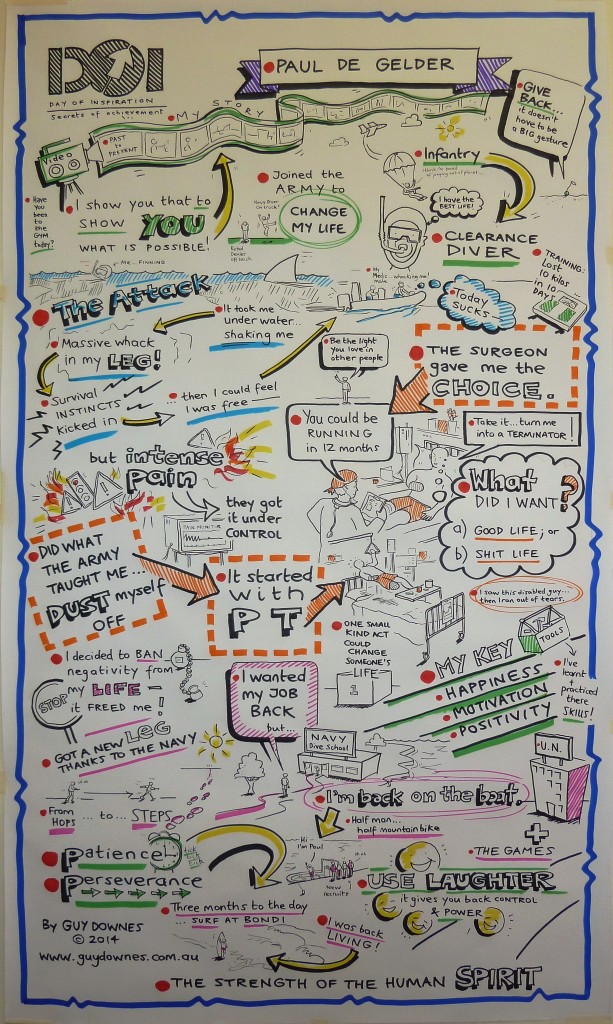 DOI
DAY OF INSPIRATION
Secrets of achievement
PAUL DE GELDER
GIVE
BACK...
it doesn't
have to be
a BIG gesture
MY STORY
PAST
to
PRESENT
Video
Have
you
been
to the
GYM
today?
I show you that to
SHOW YOU
WHAT IS POSSIBLE!
Joined the
ARMY to
CHANGE
MY LIFE
Infantry
I have the
BEST LIFE!
CLEARANCE
DIVER
TRAINING:
Lost
10 kilos
in 10
DAYS
ME... FINNING
The Attack
It took me
under water...
shaking me
Today
SUCKS
Massive whack
in my LEG!
Survival
INSTINCTS
kicked in
... then I could feel
I was free
Be the light
you love in
other people
THE SURGEON
gave me the
CHOICE.
You could be
RUNNING
in 12 months
Take it... turn me
into a TERMINATOR!
but intense
pain
they got
it under
CONTROL
PAIN MONITOR
What
DID I WANT?
a) GOOD LIFE; or
b) SHIT LIFE
DID WHAT
THE ARMY
TAUGHT ME...
DUST myself
OFF
It started
with
PT
I saw this disabled guy...
then I ran out of tears.
ONE SMALL
KIND ACT
COULD
CHANGE
SOMEONE'S
LIFE
1
TOOLS
MY KEY
HAPPINESS
MOTIVATION
POSITIVITY
I've
learnt
+
practiced
there
SKILLS!
I decided to BAN
negativity from
my LIFE -
it FREED me!
STOP
I wanted
my JOB
BACK
but...
GOT A NEW LEG
THANKS TO THE NAVY
NAVY
Dive School
U.N.
I'm back on the boat.
Half man...
half mountain bike
+
THE GAMES
From
HOPS ... to ... STEPS
Patience
Perseverance
Hi
I'm Paul
New
recruits
USE LAUGHTER
it gives you back CONTROL
& POWER
Three months to the day
... SURF AT BONDI
I was back
LIVING!
By GUY DOWNES
© 2014
www.guydownes.com.au
THE STRENGTH OF THE HUMAN SPIRIT